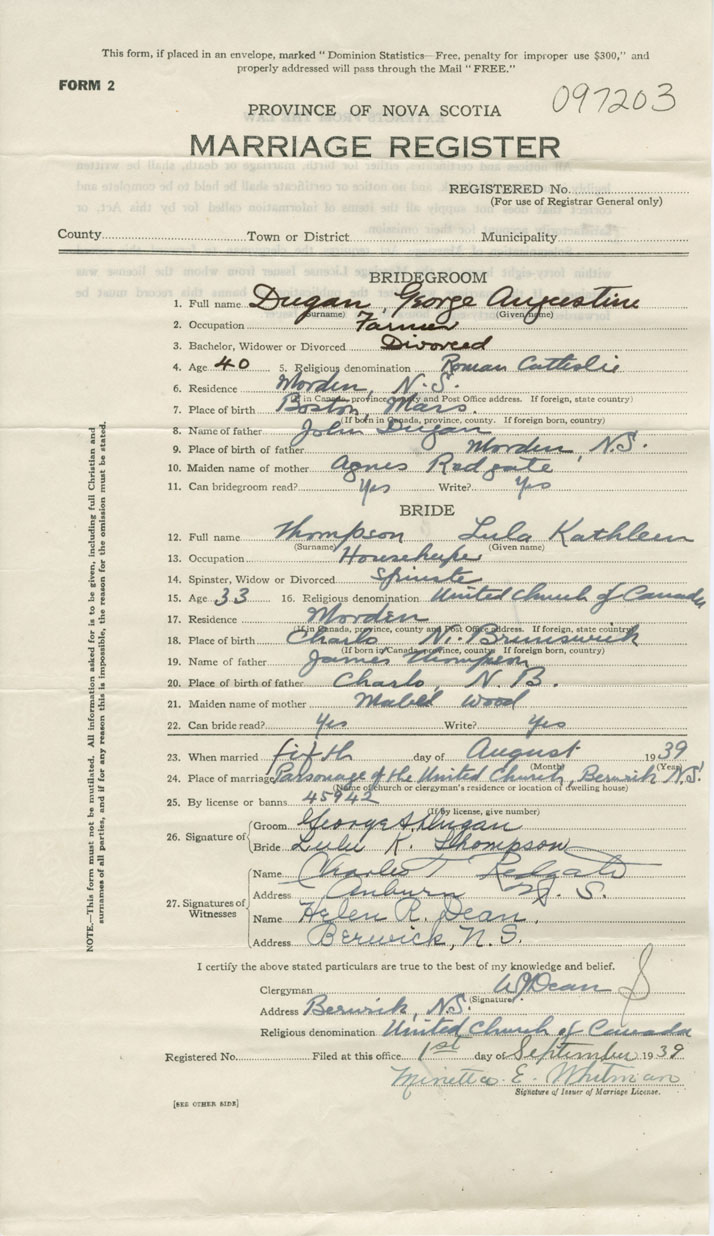 This form, if placed in an envelope, marked "Dominion Statistics—Free, penalty for improper use $300," and
properly addressed will pass through the Mail "FREE."
FORM 2
097203
PROVINCE OF NOVA SCOTIA
MARRIAGE REGISTER
REGISTERED No.
(For use of Registrar General only)
County Town or District Municipality
BRIDEGROOM
1. Full name Dugan, George Augustine
(Surname) (Given name)
2. Occupation Farmer
3. Bachelor, Widower or Divorced Divorced
4. Age 40 5. Religious denomination Roman Catholic
6. Residence Morden, N.S.
(If in Canada, province, county and Post Office address. If foreign, state country)
7. Place of birth Boston, Mass.
(If born in Canada, province, county. If foreign born, country)
8. Name of father John Dugan
9. Place of birth of father Morden, N.S.
10. Maiden name of mother Agnes Redgate
11. Can bridegroom read? Yes Write? Yes
BRIDE
12. Full name Thompson Lula Kathleen
(Surname) (Given name)
13. Occupation Housekeeper
14. Spinster, Widow or Divorced Spinster
15. Age 33 16. Religious denomination United Church of Canada
17. Residence Morden
(If in Canada, province, county and Post Office address. If foreign, state country)
18. Place of birth Charlo N. Brunswick
(If born in Canada, province, county. If foreign born, country)
19. Name of father James Thompson
20. Place of birth of father Charlo, N.B.
21. Maiden name of mother Mabel Wood
22. Can bride read? Yes Write? Yes
23. When married fifth day of August 1939
(Month) (Year)
24. Place of marriage Parsonage of the United Church, Berwick N.S.
(Name of church or clergyman's residence or location of dwelling house)
25. By license or banns 45942
(If by license, give number)
26. Signature of Groom George A. Dugan
Bride Lula K. Thompson
27. Signatures of Witnesses
Name Charles T Redgate
Address Auburn N.S.
Name Helen R. Dean
Address Berwick, N.S.
I certify the above stated particulars are true to the best of my knowledge and belief.
Clergyman W J Dean
(Signature)
Address Berwick, N.S.
Religious denomination United Church of Canada
Registered No. Filed at this office 1st day of September 1939
Minetta E. Whitman
Signature of Issuer of Marriage License.
[SEE OTHER SIDE]
NOTE.—This form must not be mutilated. All information asked for is to be given, including full Christian and
surnames of all parties, and if for any reason this is impossible, the reason for the omission must be stated.